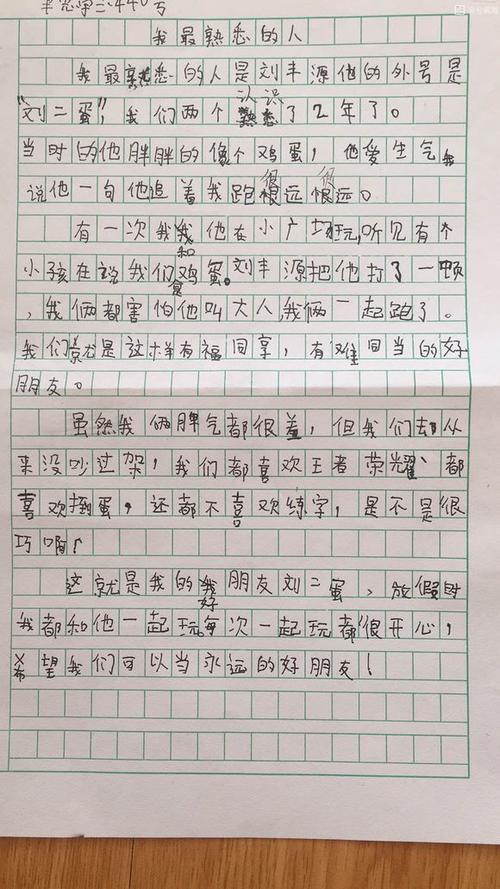 我最熟悉的人
我最熟悉的人是刘丰源他的外号是
"刘二蛋",我们两个认识了2年了。
当时的他胖胖的像个鸡蛋,他爱生气我
说他一句他追着我跑很远很远。
有一次我和他在小广场玩,听见有个
小孩在说我们是鸡蛋。刘丰源把他打了一顿
,我俩都害怕他叫大人,我俩一起跑了。
我们就是这样有福同享,有难同当的好
朋友。
虽然我俩脾气都很差,但我们去从
来没吵过架,我们都喜欢王者荣耀、都
喜欢捣蛋,还都不喜欢练字,是不是很
巧啊!
这就是我的好朋友刘二蛋,放假时
我都和他一起玩,每次一起玩都很开心,
希望我们可以当永远的好朋友!